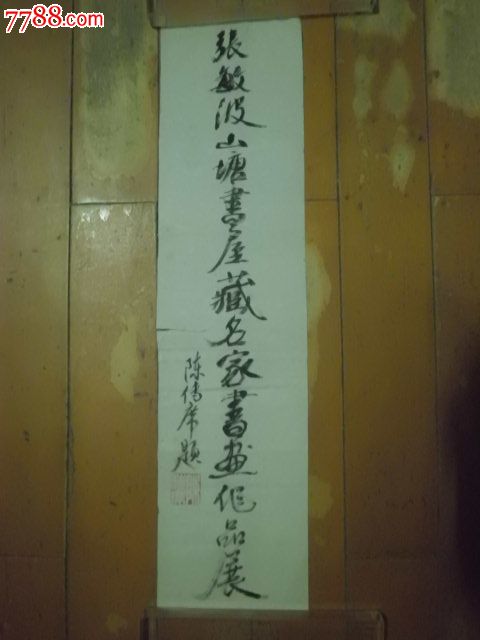 7788.com
張敏波山塘書屋藏名家書画作品展
陈传席題